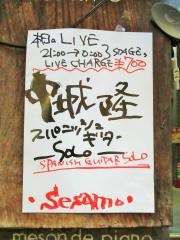 LIVE
21:00→0:00 3 STAGE,
LIVE CHARGE ¥700
中城 隆
スパニッシュ
ギター
SOLO
SPANISH GUITAR SOLO
・Sesamo・
meson de piano